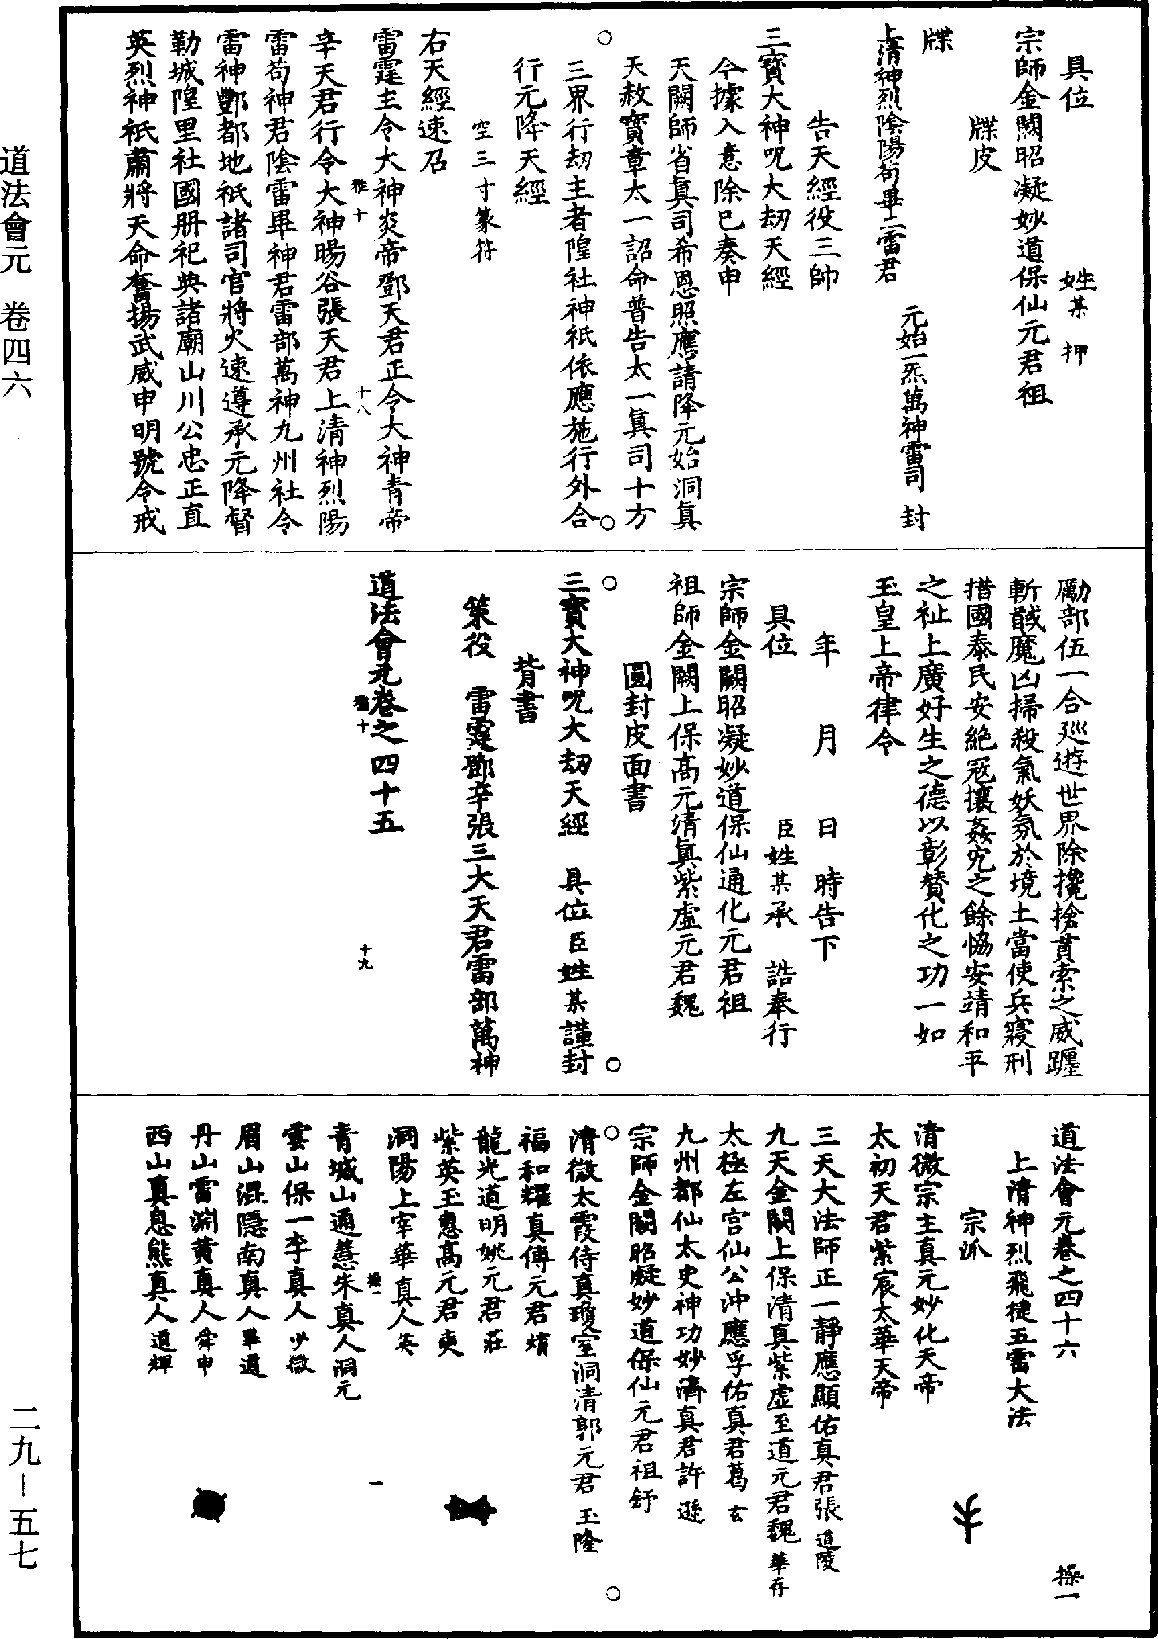 具位　姓某　押
宗師金闕昭凝妙道保仙元君祖
牒皮
牒
上清神烈陰陽苟畢二雷君
元始一炁萬神雷司　封
告天經役三帥
三寶大神呪大劫天經
今據入意除已奏申
天闕師省真司希恩照應請降元始洞真
天赦寶章太一詔命普告太一真司十方
三界行劫主者隍社神祇依應施行外合
行元降天經
空三寸篆符
右天經速召
雷霆主令大神炎帝鄧天君正令大神青帝
雅十　十八
辛天君行令大神暘谷張天君上清神烈陽
雷苟神君陰雷畢神君雷部萬神九州社令
雷神酆都地祇諸司官將火速遵承元降督
勒城隍里社國册祀典諸廟山川公忠正直
英烈神祇肅將天命奮揚武威申明號令戒
勵部伍一合廵遊世界除攙搶貫索之威躔
斬馘魔凶掃殺氣妖氛於境土當使兵寢刑
措國泰民安絶寇攘姦宄之餘恊安靖和平
之祉上廣好生之德以彰贊化之功一如
玉皇上帝律令
年　月　日　時告下
具位　臣姓某承　誥奉行
宗師金闕昭凝妙道保仙通化元君祖
祖師金闕上保高元清真紫虛元君魏
圓封皮面書
三寶大神呪大劫天經　具位臣姓某謹封
背書
策役　雷霆鄧辛張三大天君雷部萬神
道法會元卷之四十五
十九
道法會元卷之四十六　操一
上清神烈飛捷五雷大法
宗派
清微宗主真元妙化天帝
太初天君紫宸太華天帝
三天大法師正一靜應顯佑真君張道陵
九天金闕上保清真紫虛至道元君魏華存
太極左宮仙公沖應孚佑真君葛玄
九州都仙太史神功妙濟真君許遜
宗師金闕昭凝妙道保仙元君祖舒
清微太霞侍真瓊室洞清郭元君玉隆
福和耀真傅元君熺
龍光道明姚元君莊
紫英玉惠高元君奭
洞陽上宰華真人英
操一　一
青城山通慧朱真人洞元
雲山保一李真人少微
眉山混隱南真人畢道
丹山雷淵黄真人舜申
西山真息熊真人道輝
道法會元　卷四六
二九－五七